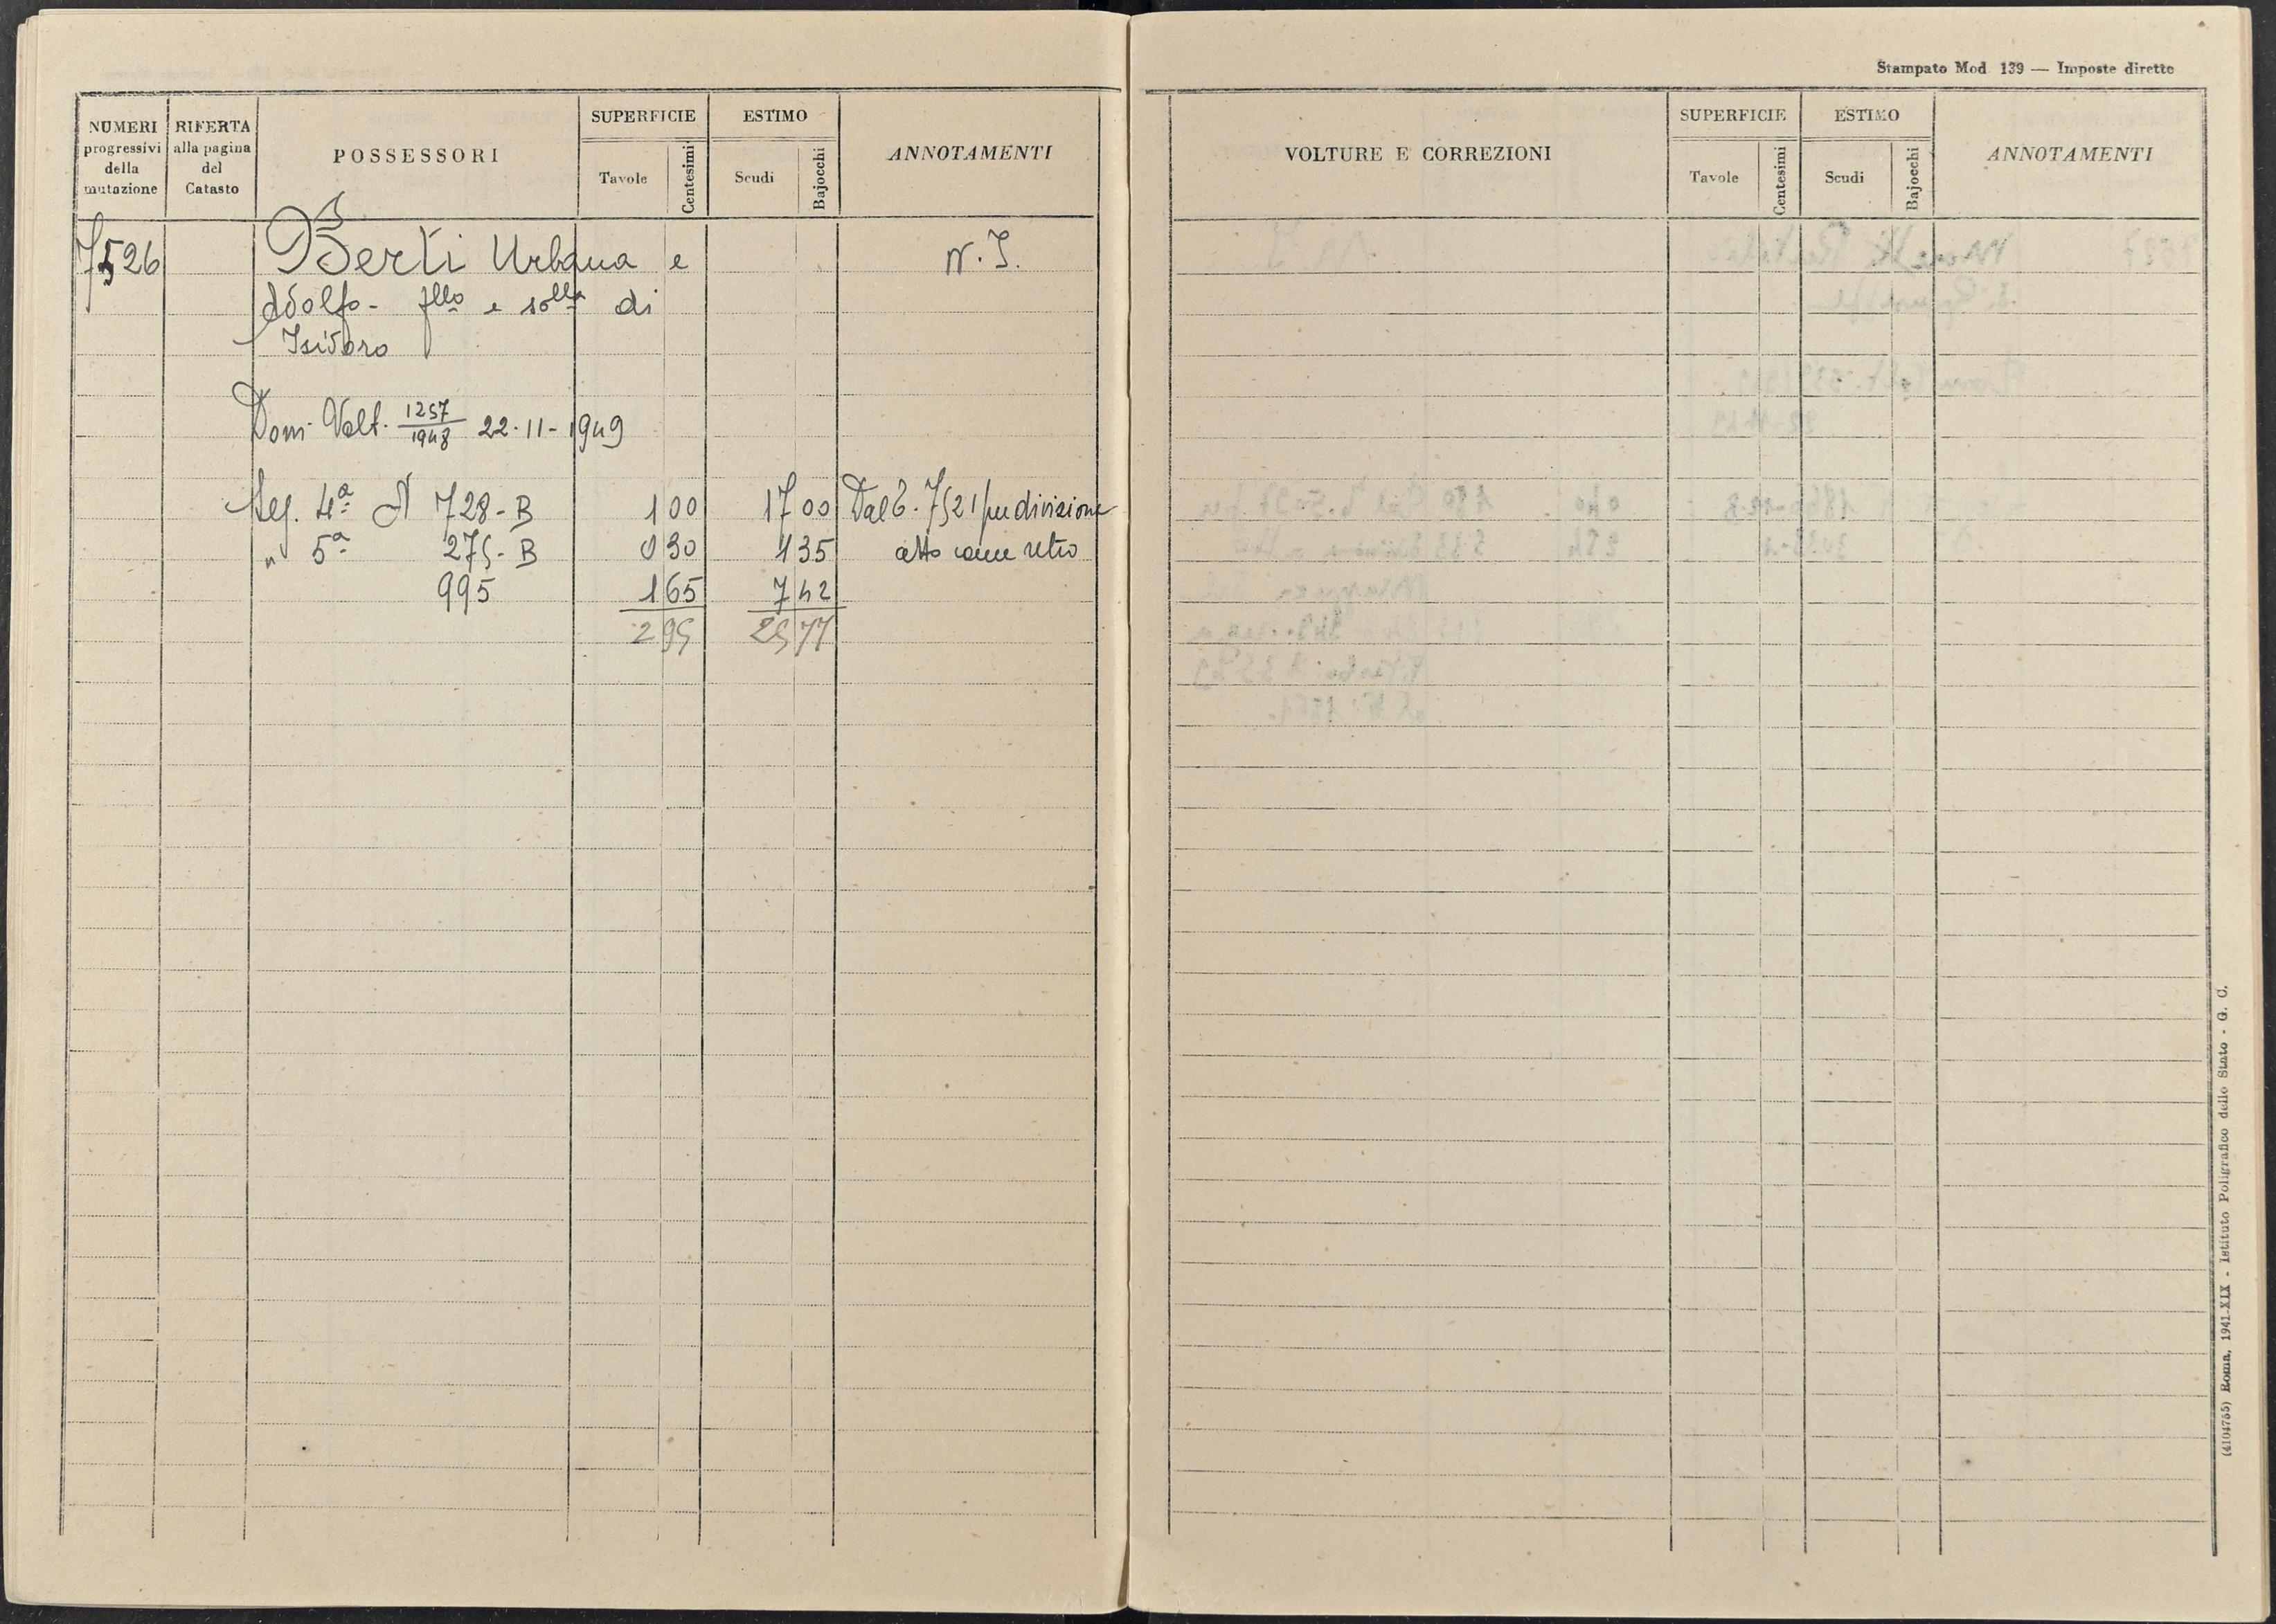 Stampato Mod. 139 — Imposte dirette
NUMERI progressivi della mutazione
RIFERTA alla pagina del Catasto
POSSESSORI
SUPERFICIE
Tavole
Centesimi
ESTIMO
Scudi
Bajocchi
ANNOTAMENTI
VOLTURE E CORREZIONI
SUPERFICIE
Tavole
Centesimi
ESTIMO
Scudi
Bajocchi
ANNOTAMENTI
7526 Berti Urbana e N. I.
Adolfo - flło e solla di
Isidoro
Dom. Volt. 1257/1948 22-11-1949
Seg. 4ª A 728-B 1 00 17 00 Dal 6. 7521 per divisione
" 5ª 275-B 0 30 1 35 atto come retro
995 1 65 7 42
2 95 25 77
(4104755) Roma, 1941-XIX - Istituto Poligrafico dello Stato - G. C.